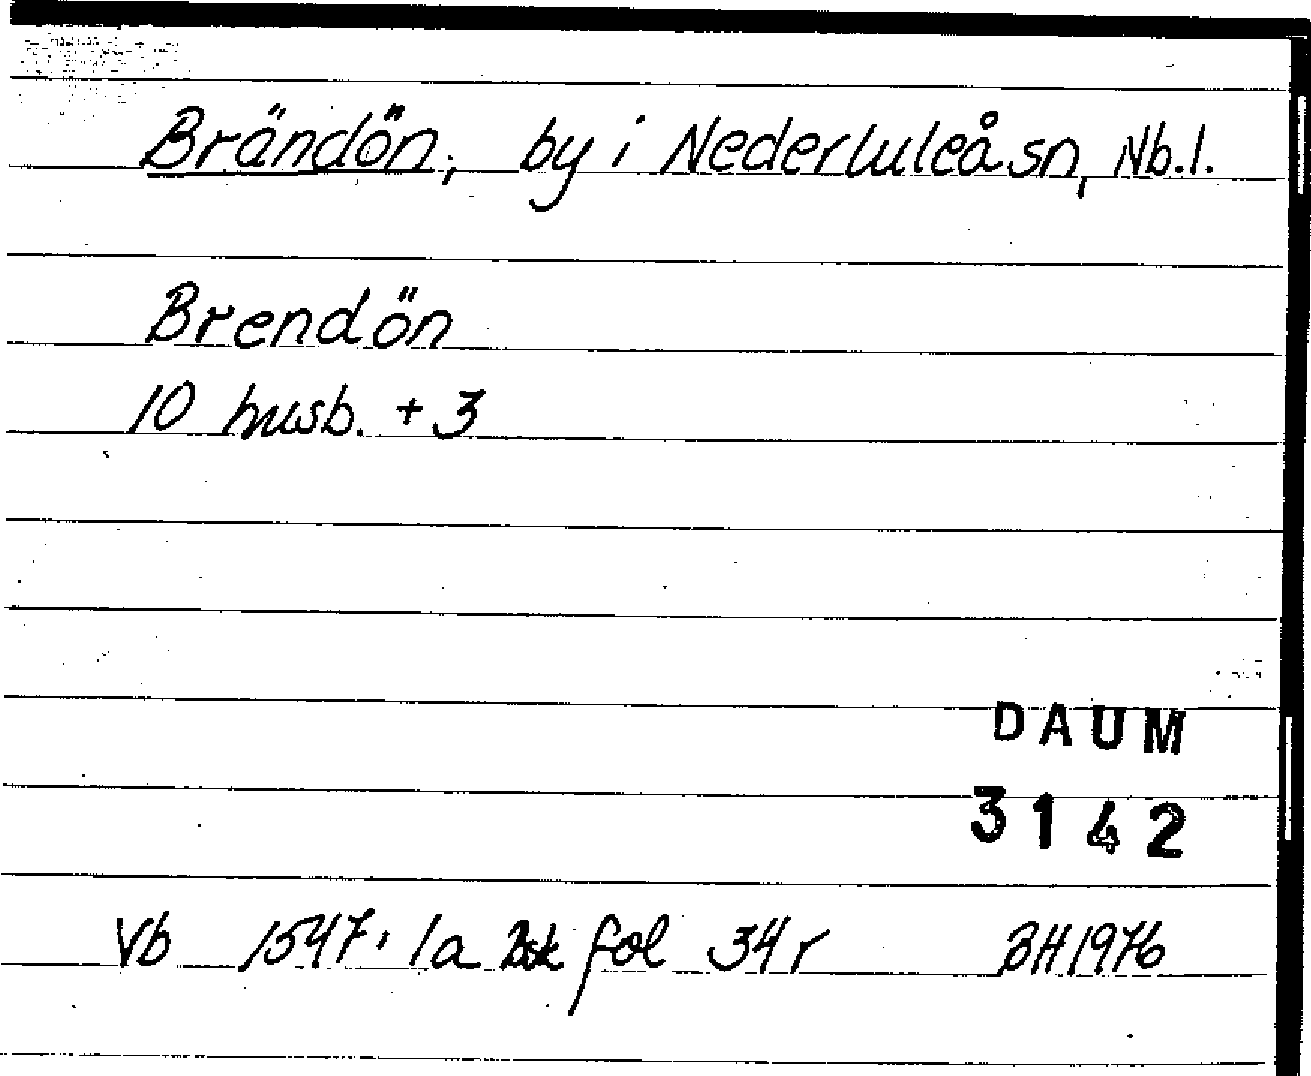 Brändön, by i Nederluleå sn, Nb.l.
Brendön
10 husb. + 3
DAUM
3142
Vb 1547:1a Bsk fol 34 r BH 1976